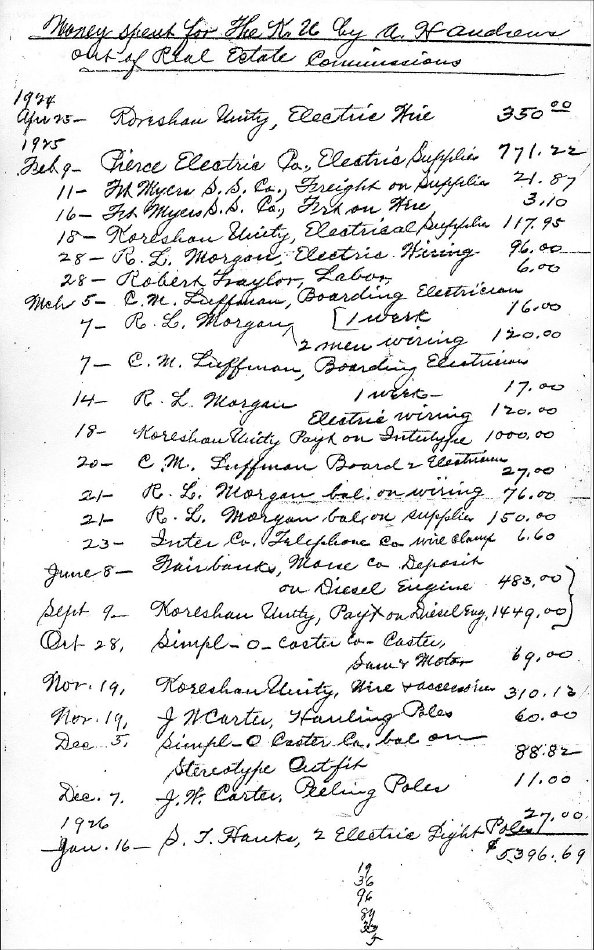 Money spent for The K. U. by A. H Andrews
out of Real Estate Commissions
1924
Apr 25- Koreshan Unity, Electric Wire 350.00
1925
Feb 9- Pierce Electric Co., Electric Supplies 771.22
11- Ft Myers S.S. Co., Freight on Supplies 21.87
16- Ft Myers S.S. Co., Frt on Wire 3.10
18- Koreshan Unity, Electrical Supplies 117.95
28- R. L. Morgan, Electric Wiring 96.00
28- Robert Traylor, Labor 6.00
Mch 5- C. M. Luffman, Boarding Electrician
1 week 16.00
7- R. L. Morgan
2 men wiring 120.00
7- C. M. Luffman, Boarding Electrician
1 week- 17.00
14- R. L. Morgan
Electric wiring 120.00
18- Koreshan Unity Payt on Intertype 1000.00
20- C. M. Luffman Board 2 Electrician
27.00
21- R. L. Morgan bal. on wiring 76.00
21- R. L. Morgan bal. on supplies 150.00
23- Inter Co. Telephone Co wire clamp 6.60
June 8- Fairbanks, Morse Co Deposit
on Diesel Engine 483.00
Sept 9- Koreshan Unity, Payt on Diesel Eng. 1449.00
Oct 28, Simpl-o-caster Co- Caster,
Saw & Motor 69.00
Nov. 19, Koreshan Unity, Wire & accessories 310.13
Nov. 19, J W Carter, Hauling Poles 60.00
Dec 5, Simpl-O Caster Co. bal on
Stereotype Outfit 88.82
Dec. 7. J. W. Carter, Peeling Poles 11.00
1926
Jan. 16- S. T. Hanks, 2 Electric Light Poles 27.00
$5,396.69
19
36
96
89
5